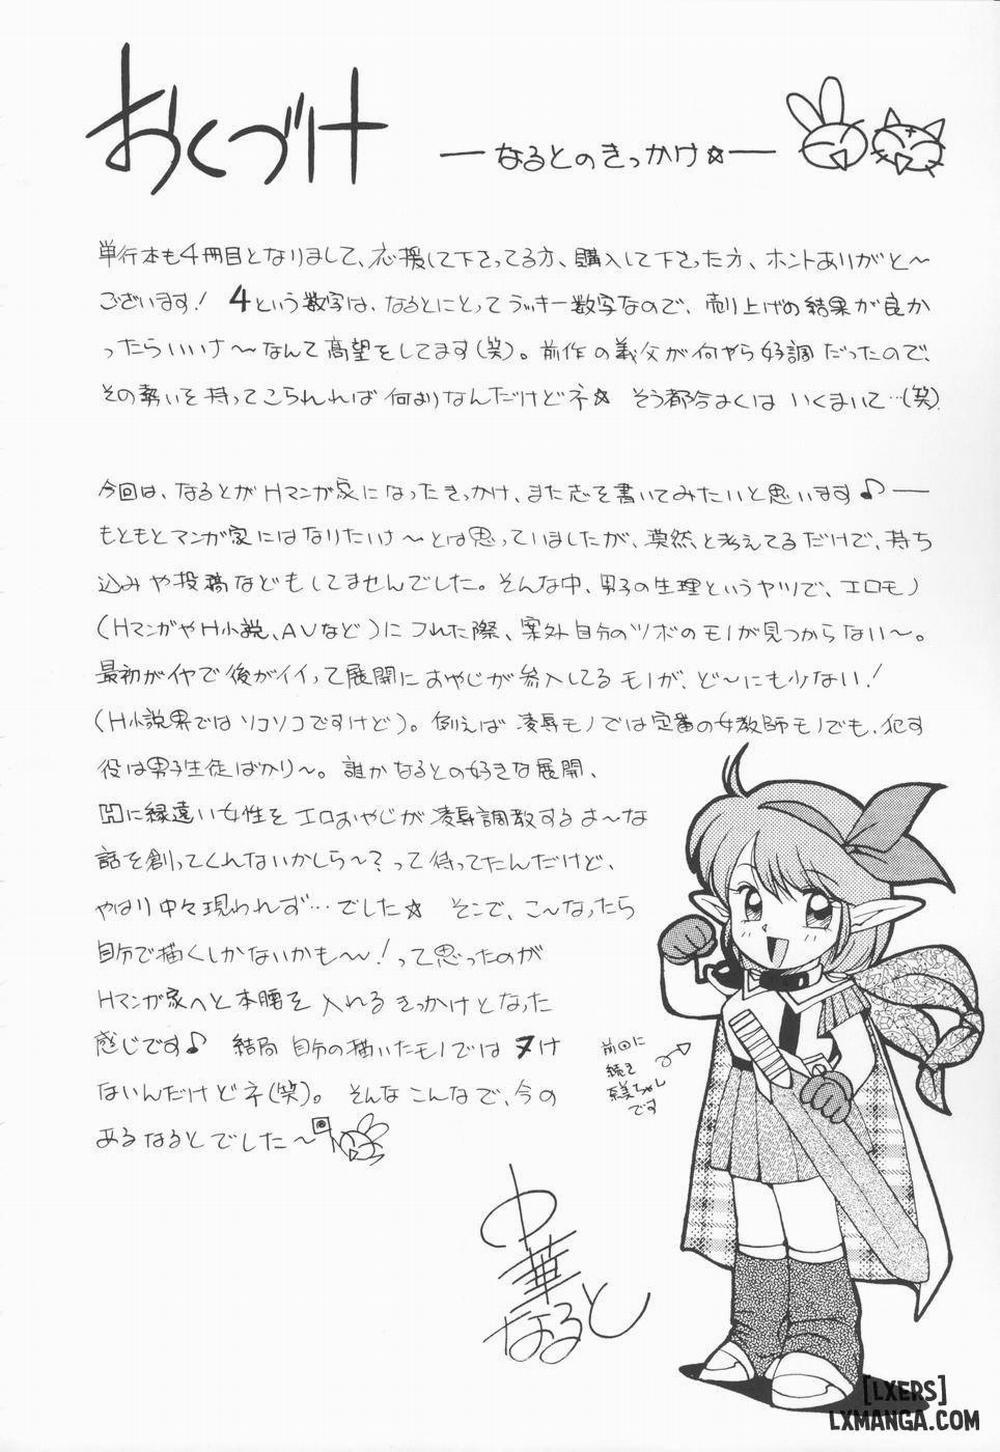 おくづけ
―なるとのきっかけ☆―
単行本も4冊目となりまして、応援して下さってる方、購入して下さった方、ホントありがと〜
ございます! 4という数字は、なるとにとってラッキー数字なので、売り上げの結果が良か
ったらいいナ〜なんて高望をしてます(笑)。前作の義父が何やら好調だったので、
その勢いを持ってこられれば何よりなんだけどネ☆ そう都合よくは いくまいて…(笑)
今回は、なるとがHマンガ家になったきっかけ、また志を書いてみたいと思います♪―
もともとマンガ家にはなりたいナ〜とは思っていましたが、漠然と考えてるだけで、持ち
込みや投稿などもしてませんでした。そんな中、男子の生理というヤツで、エロモノ
(HマンガやH小説、AVなど)にフれた際、案外自分のツボのモノが見つからない〜。
最初がイヤで後がイイって展開におやじが参入してるモノが、ど〜にも少ない!
(H小説界ではソコソコですけど)。例えば 凌辱モノでは定番の女教師モノでも、犯す
役は男子生徒ばかり〜。誰かなるとの好きな展開、
凶に縁遠い女性をエロおやじが凌辱調教するよ〜な
話を創ってくんないかしら〜?って待ってたんだけど、
やはり中々現われず…でした☆ そこで、こ〜なったら
自分で描くしかないかも〜!って思ったのが
Hマンガ家へと本腰を入れるきっかけとなった
感じです♪ 結局 自分の描いたモノではヌけ
ないんだけどネ(笑)。そんなこんなで、今の
あるなるとでした〜
前回に
続き
奈美ちゃん
です
中華
なると
[LXERS]
LXMANGA.COM